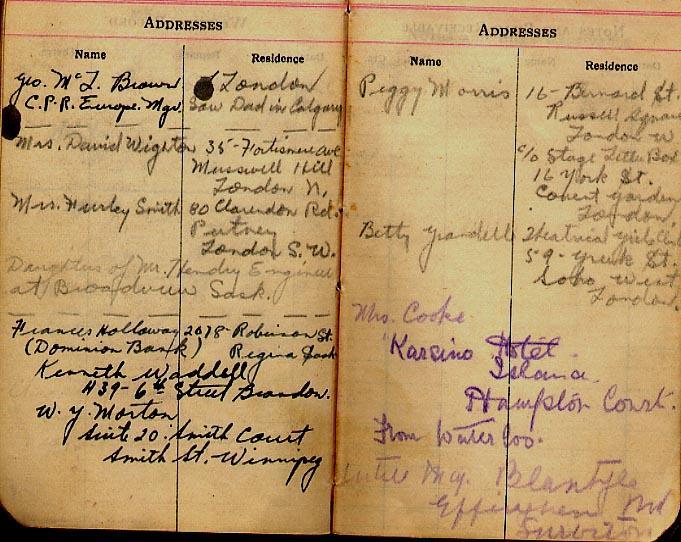 ADDRESSES
Name Residence
Geo. McL. Brown London
C.P.R. Europe. Mgr. Saw Dad in Calgary
Mrs. David Wighton 35 - Fortismere Ave
Musswell Hill
London N.
Mrs. Hurley Smith 80 Clarendon Rd.
Putney
London S.W.
Daughter of Mr. Hendry Engineer
at Broadview Sask.
Frances Holloway 2078 - Robinson St.
(Dominion Bank) Regina Sask
Kenneth Waddell
439 - 6th Street Brandon.
W. Y. Morton
Suite 20. Smith Court
Smith St. Winnipeg
ADDRESSES
Name Residence
Peggy Morris 16 - Bernard St.
Russell Square
London W
c/o Stage Letter Box
16 York St.
Covent Garden
London.
Betty Grandell Theatrical Girls Club
59 - Greek St.
Soho West
London.
Mrs. Cooke
"Karsino Hotel
Island.
Hampton Court.
From Waterloo.
Blantyre
Effingham Rd
Surbiton.